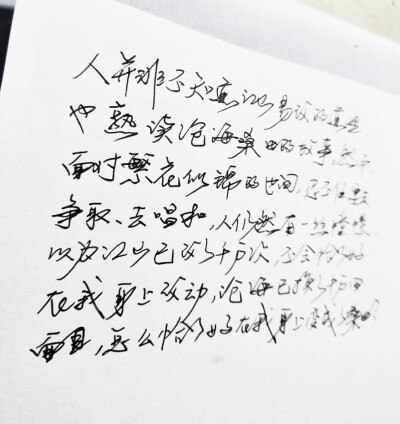 人并非不知寒江山易改的真理
也熟读沧海桑田的故事,然而
面对繁花似锦的世间,还是想要
争取、去唱和,人们总有一丝侥幸
以为江山已改了千万次,不会恰好
在我身上改动,沧海已换了千回
面目,怎么恰好在我身上变成了桑田